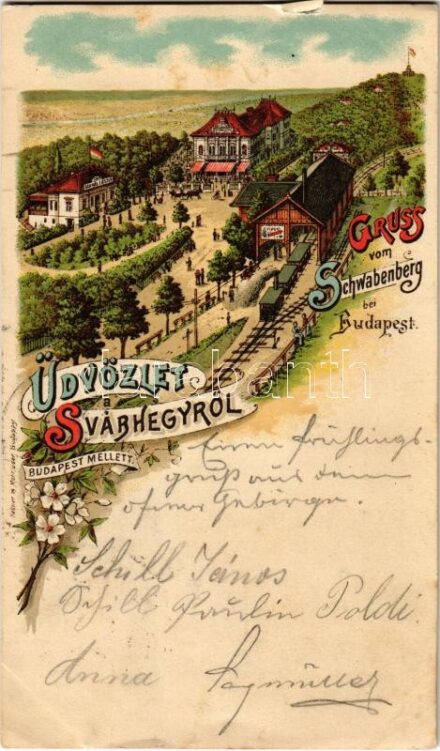 GRUSS
vom
Schwabenberg
bei
Budapest.
ÜDVÖZLET
SVÁBHEGYRŐL
BUDAPEST MELLETT
Einen Frühlings-
gruß aus dem
ofner Gebirge.
Schill János
Schill Paulin Poldi.
Anna